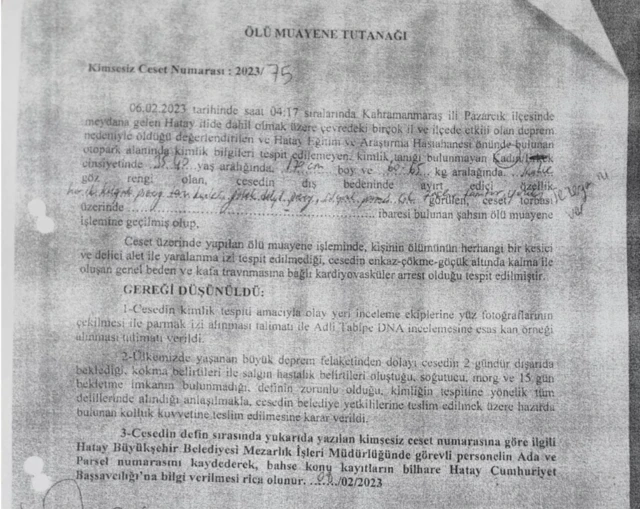 ÖLÜ MUAYENE TUTANAĞI
Kimsesiz Ceset Numarası : 2023/75
06.02.2023 tarihinde saat 04:17 sıralarında Kahramanmaraş ili Pazarcık ilçesinde
meydana gelen Hatay ilide dahil olmak üzere çevredeki birçok il ve ilçede etkili olan deprem
nedeniyle öldüğü değerlendirilen ve Hatay Eğitim ve Araştırma Hastahanesi önünde bulunan
otopark alanında kimlik bilgileri tespit edilemeyen, kimlik tanığı bulunmayan Kadın
cinsiyetinde yaş aralığında, boy ve kg aralağında,
göz rengi olan, cesedin dış bedeninde ayırt edici özellik
görülen, ceset torbası
üzerinde ibaresi bulunan şahsın ölü muayene
işlemine geçilmiş olup,
Ceset üzerinde yapılan ölü muayene işleminde, kişinin ölümünün herhangi bir kesici
ve delici alet ile yaralanma izi tespit edilmediği, cesedin enkaz-çökme-göçük altında kalma ile
oluşan genel beden ve kafa travmasına bağlı kardiyovasküler arrest olduğu tespit edilmiştir.
GEREĞİ DÜŞÜNÜLDÜ:
1-Cesedin kimlik tespiti amacıyla olay yeri inceleme ekiplerine yüz fotoğraflarının
çekilmesi ile parmak izi alınması talimatı ile Adli Tabipe DNA incelemesine esas kan örneği
alınması talimatı verildi.
2-Ülkemizde yaşanan büyük deprem felaketinden dolayı cesedin 2 gündür dışarıda
beklediği, kokma belirtileri ile salgın hastalık belirtileri oluştuğu, soğutucu, morg ve 15 gün
bekletme imkanın bulunmadığı, definin zorunlu olduğu, kimliğin tespitine yönelik tüm
delillerinde alındığı anlaşılmakla, cesedin belediye yetkililerine teslim edilmek üzere hazırda
bulunan kolluk kuvvetine teslim edilmesine karar verildi.
3-Cesedin defin sırasında yukarıda yazılan kimsesiz ceset numarasına göre ilgili
Hatay Büyükşehir Belediyesi Mezarlık İşleri Müdürlüğünde görevli personelin Ada ve
Parsel numarasını kaydederek, bahse konu kayıtların bilhare Hatay Cumhuriyet
Başsavcılığı'na bilgi verilmesi rica olunur. /02/2023